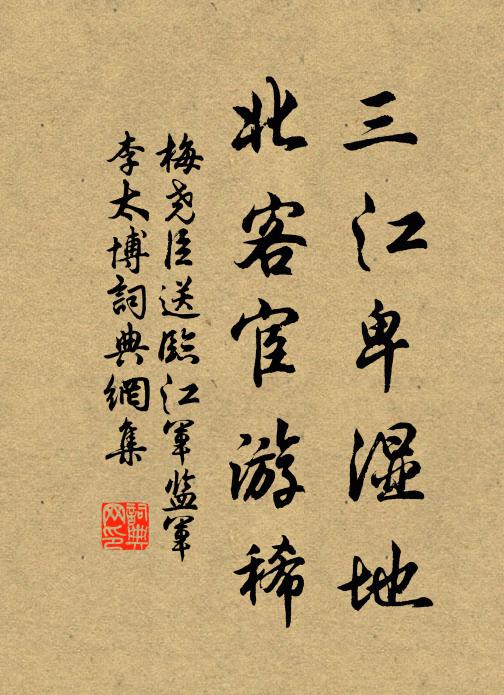 三江卑湿地
北客宦游稀
梅尧臣送临江军监军
李太博詞典網集
詞典
网印